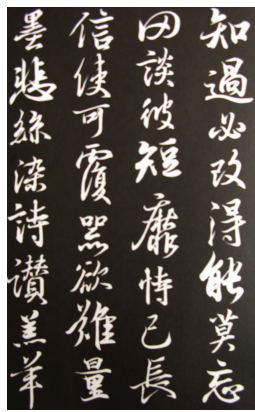 知過必改得能莫忘
罔談彼短靡恃己長
信使可覆器欲難量
墨悲絲染詩讚羔羊